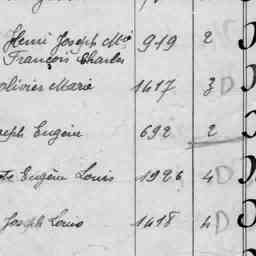 Henri Joseph Mie 949 2
François Charles
olivier Marie 1417 3 D
seph Eugène 692 2
te Eugène Louis 1926 4 D
Joseph Louis 1418 4 D